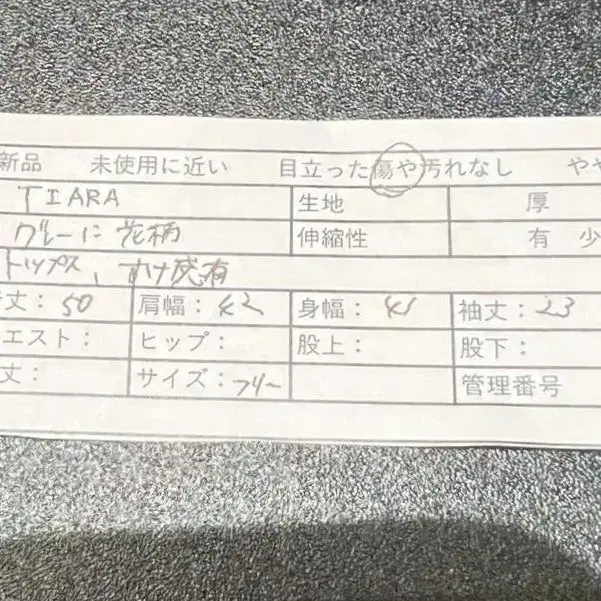 新品 未使用に近い 目立った傷や汚れなし やや
TIARA 生地 厚
グレーに花柄 伸縮性 有 少
トップス、すけ感有
丈：50 肩幅：42 身幅：41 袖丈：23
エスト： ヒップ： 股上： 股下：
丈： サイズ：フリー 管理番号